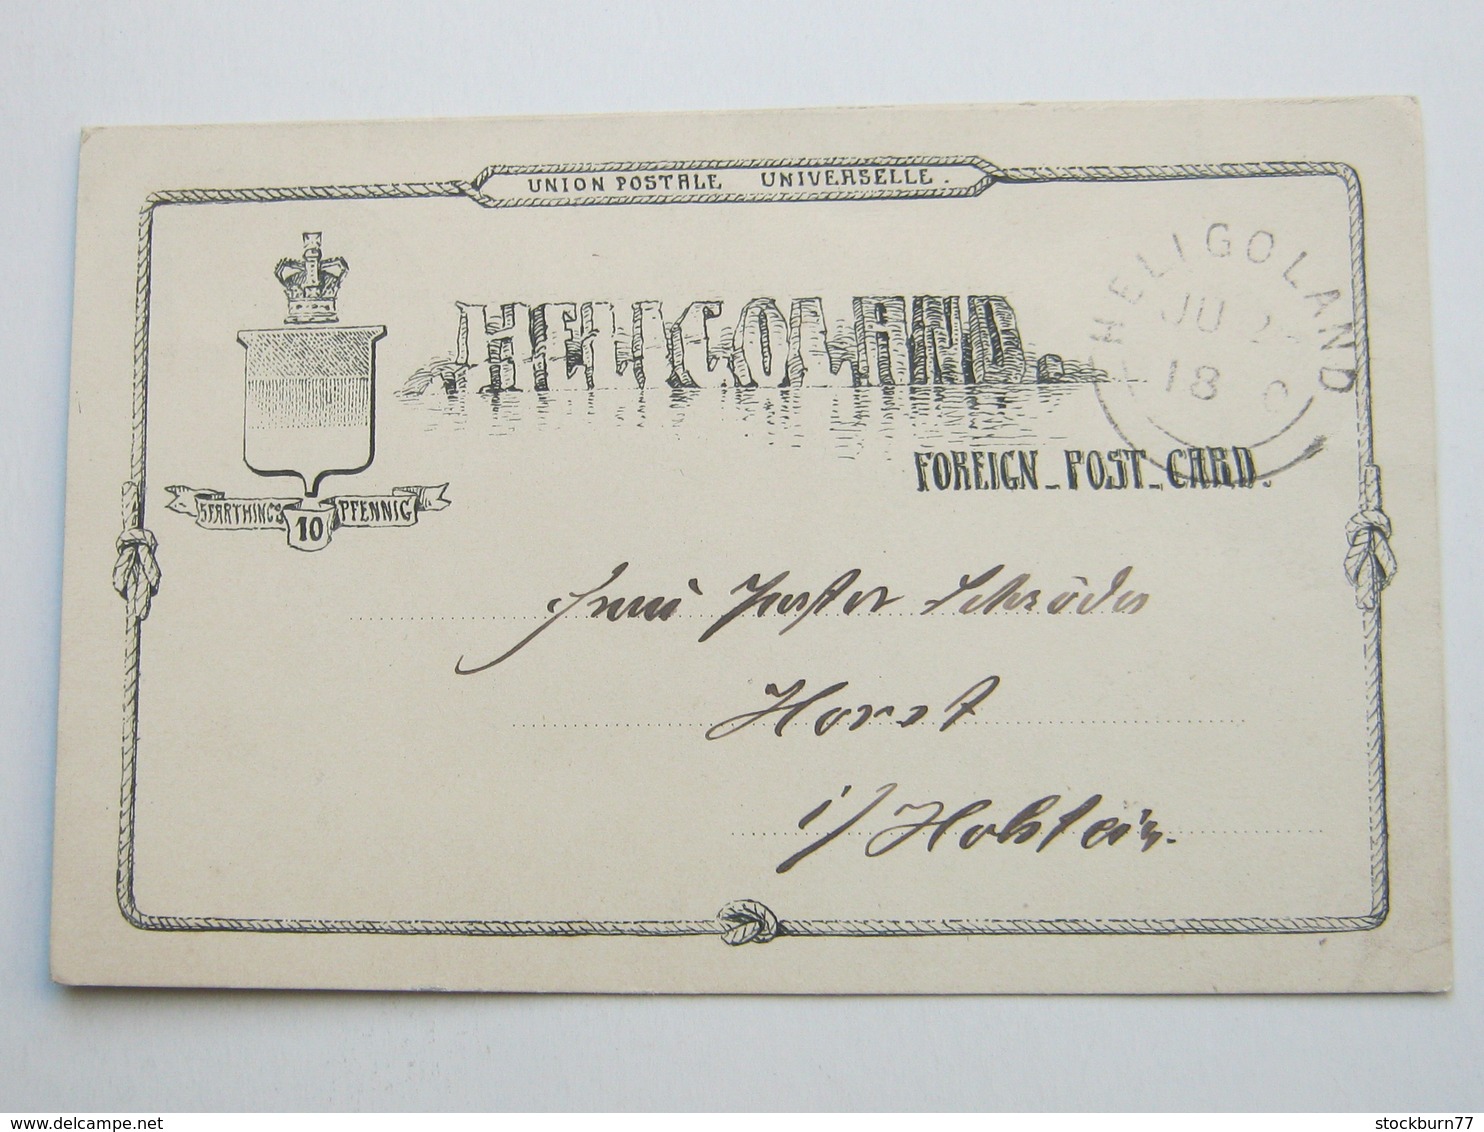 UNION POSTALE UNIVERSELLE.
HELIGOLAND.
HELIGOLAND
JU 2
18
FOREIGN_POST_CARD.
5 FARTHINGS 10 PFENNIG
Frau Pastor Schröder
Horst
i/Holstein.
www.delcampe.net
stockburn77